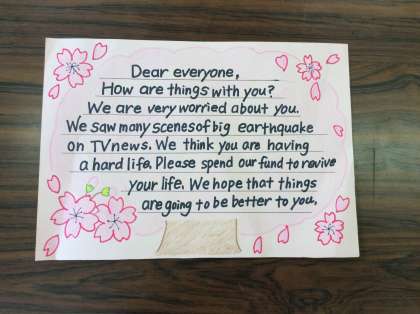 Dear everyone,
How are things with you?
We are very worried about you.
We saw many scenes of big earthquake
on TV news. We think you are having
a hard life. Please spend our fund to revive
your life. We hope that things
are going to be better to you.